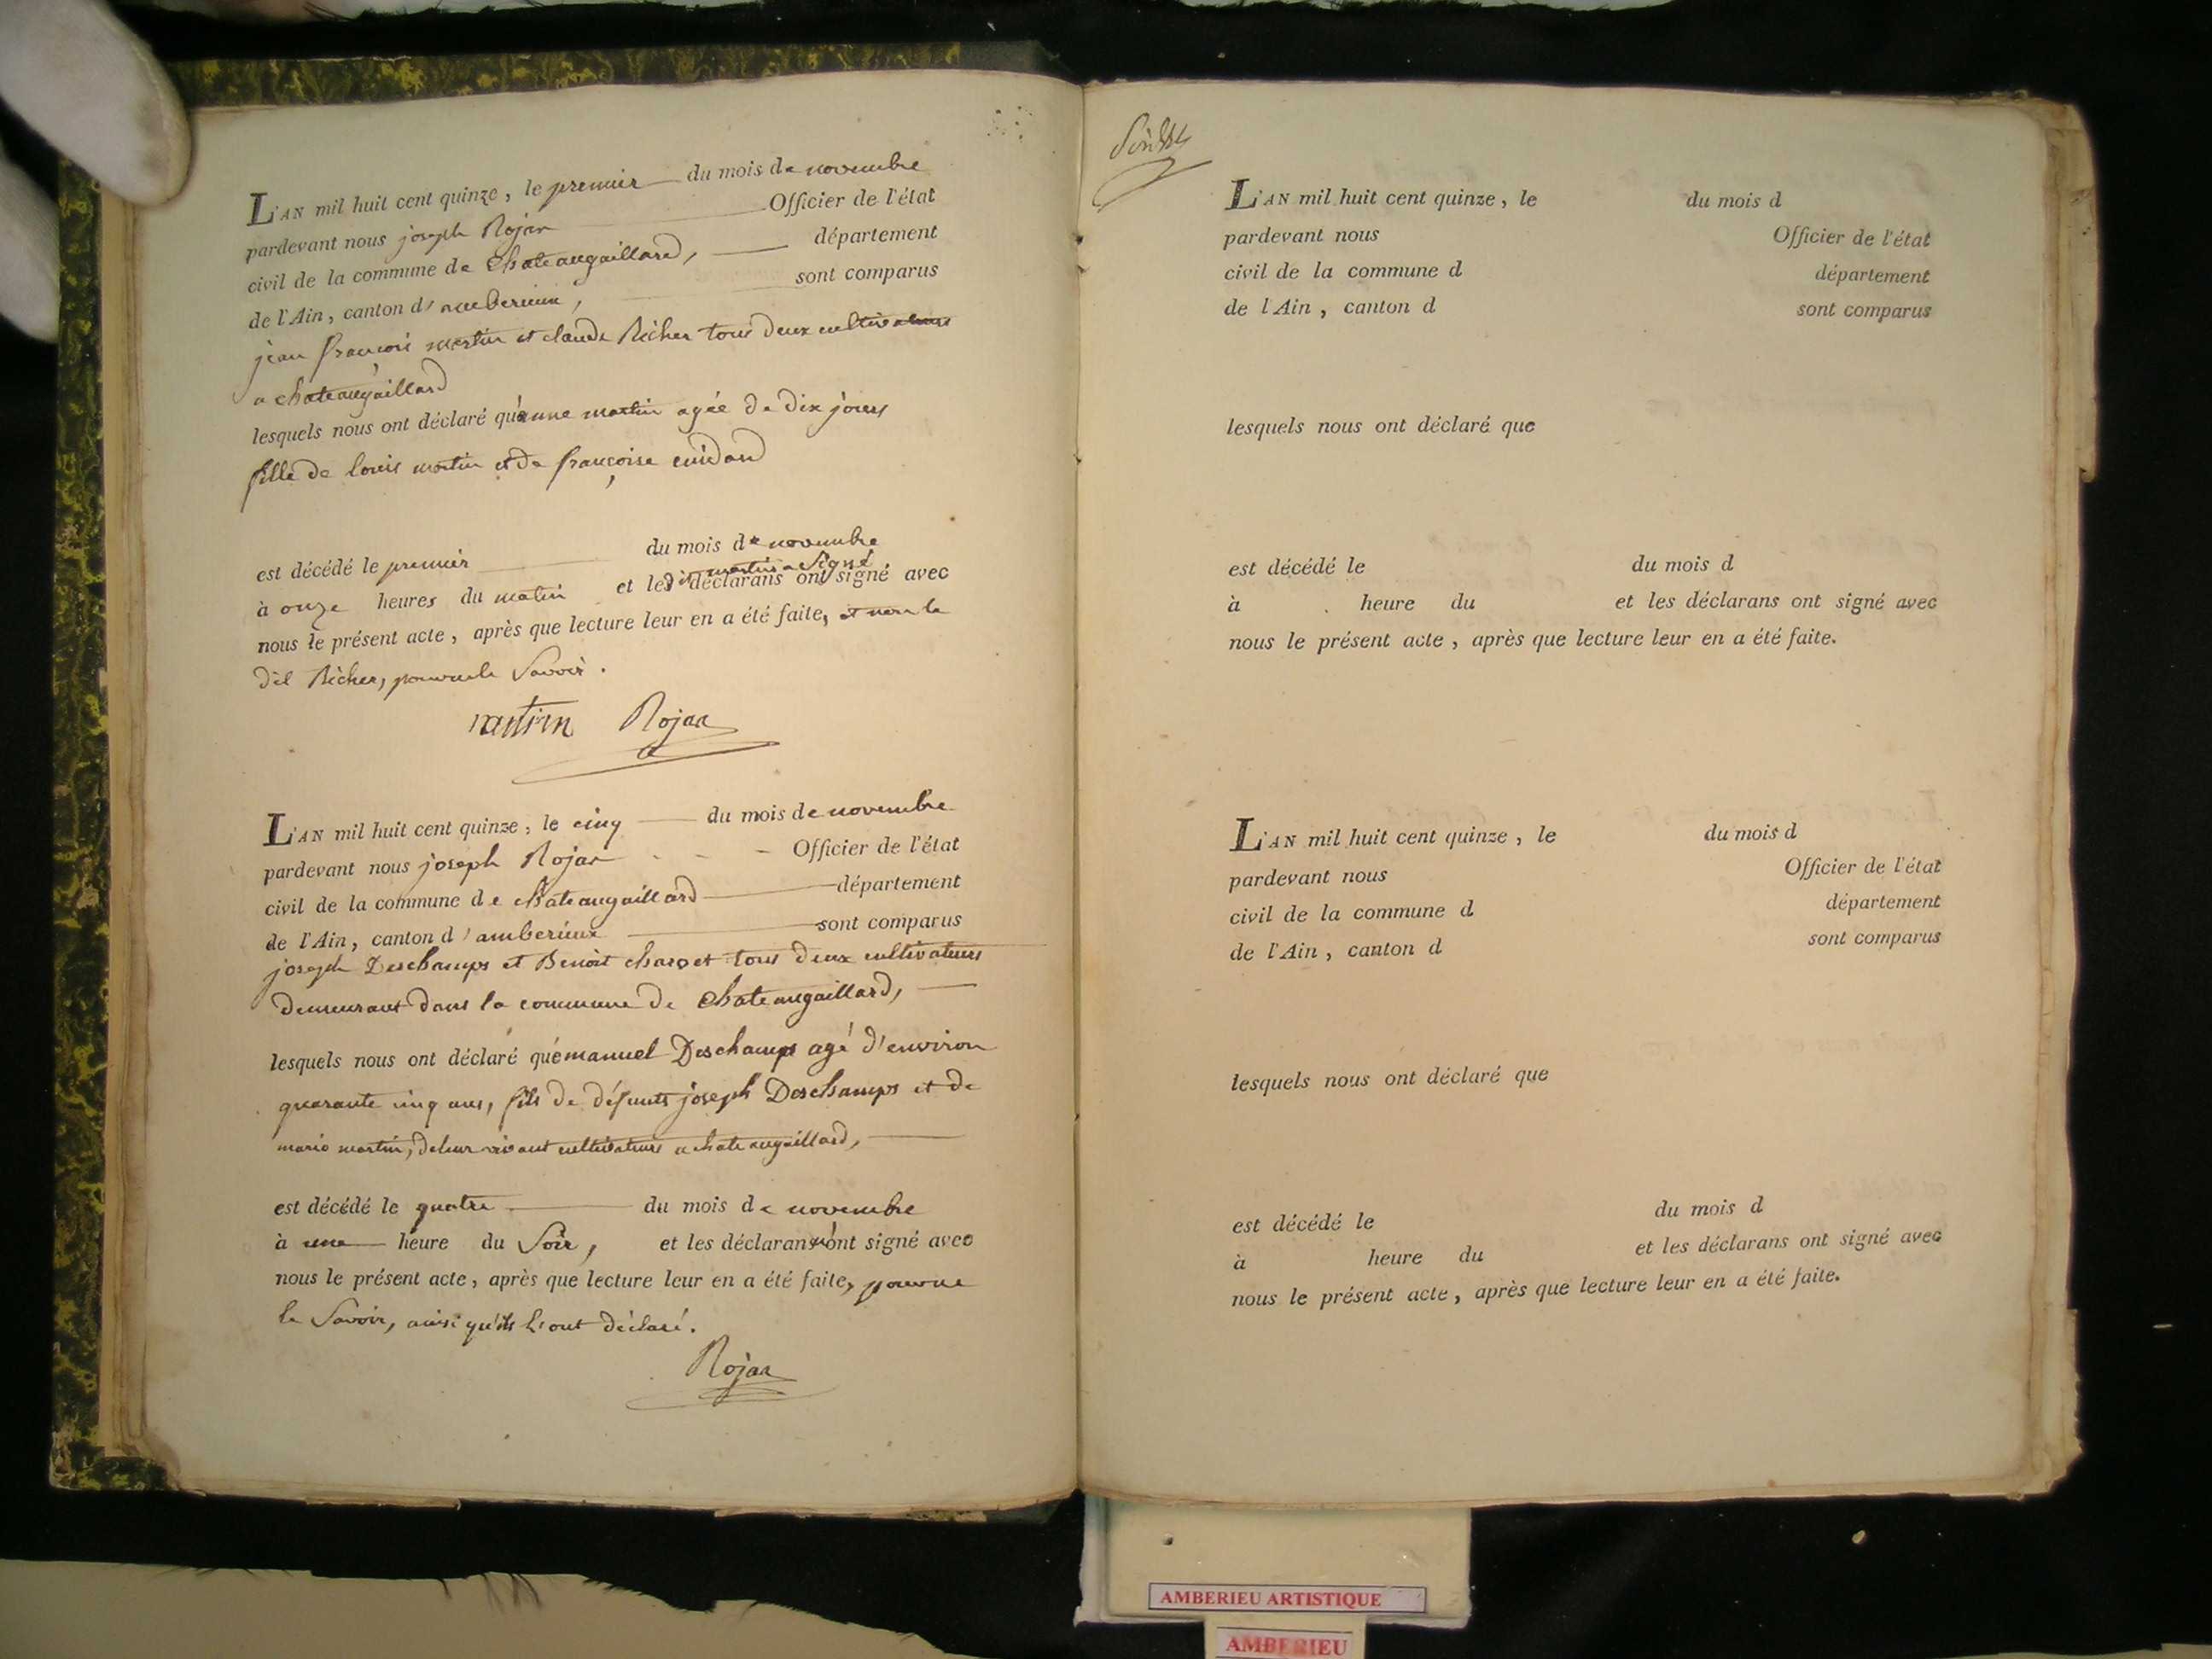 L'AN mil huit cent quinze, le premier du mois de novembre
pardevant nous joseph Rojar Officier de l'état
civil de la commune de chateaugaillard, département
de l'Ain, canton d'amberieux, sont comparus
jean françois martin et claude Richer tous deux cultivateurs
a chateaugaillard
lesquels nous ont déclaré qu'anne martin agée de dix jours
fille de louis martin et de françoise
est décédé le premier du mois de novembre
martin a signé
à onze heures du matin et led déclarans ont signé avec
nous le présent acte, après que lecture leur en a été faite, et non le
dit Richer, pour ne le Savoir.
martin Rojar
L'AN mil huit cent quinze, le cinq du mois de novembre
pardevant nous joseph Rojar Officier de l'état
civil de la commune de chateaugaillard département
de l'Ain, canton d'amberieux sont comparus
joseph Deschamps et Benoit charvet tous deux cultivateurs
demeurant dans la commune de chateaugaillard,
lesquels nous ont déclaré qu'emanuel Deschamps agé d'environ
quarante cinq ans, fils de défunts joseph Deschamps et de
marie martin, de leur vivant cultivateurs a chateaugaillard,
est décédé le quatre du mois de novembre
à une heure du Soir, et les déclarans n'ont signé avec
nous le présent acte, après que lecture leur en a été faite, pour ne
le Savoir, ainsi qu'ils l'ont déclaré.
Rojar
L'AN mil huit cent quinze, le du mois d
pardevant nous Officier de l'état
civil de la commune d département
de l'Ain, canton d sont comparus
lesquels nous ont déclaré que
est décédé le du mois d
à heure du et les déclarans ont signé avec
nous le présent acte, après que lecture leur en a été faite.
L'AN mil huit cent quinze, le du mois d
pardevant nous Officier de l'état
civil de la commune d département
de l'Ain, canton d sont comparus
lesquels nous ont déclaré que
est décédé le du mois d
à heure du et les déclarans ont signé avec
nous le présent acte, après que lecture leur en a été faite.
AMBERIEU ARTISTIQUE
AMBERIEU